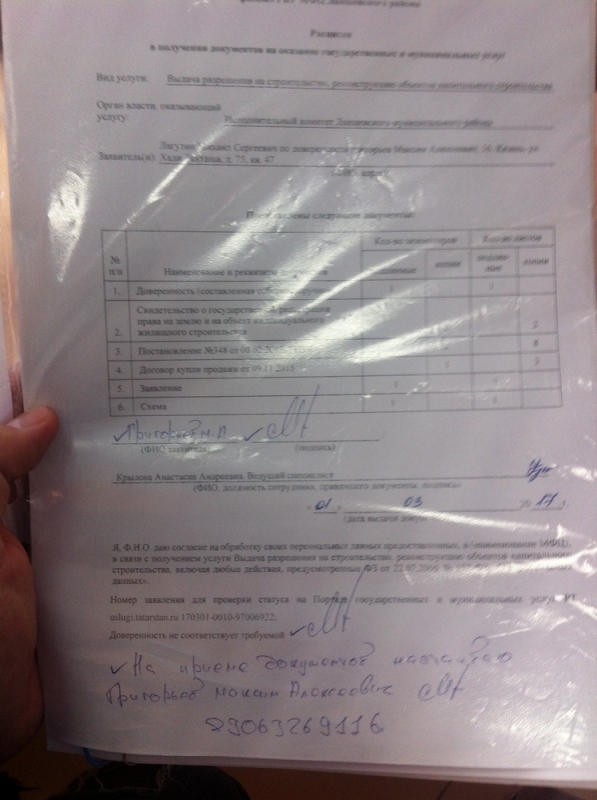 Расписка
в получении документов на оказание государственных и муниципальных услуг
Вид услуги: Выдача разрешения на строительство, реконструкцию объектов капитального строительства
Орган власти, оказывающий
услугу: Исполнительный комитет Лаишевского муниципального района
Сергеевич по доверенности Григорьев Максим
Заявитель(и): Хади Такташа, д. 75, кв. 47
следующие документы:
№ п/п Наименование и реквизиты Кол-во экземпляров Кол-во листов
копии подлин-ные копии
1. Доверенность (составленная 1 1
Свидетельство о государственной регистрации
права на землю и на объект индивидуального
2. жилищного строительства 2
3. Постановление №348 от 8
4. Договор купли продажи от 09.11.2015 3
5. Заявление 1
6. Схема 1
Григорьев М.А.
(ФИО заявителя) (подпись)
Крылова Анастасия Андреевна, Ведущий специалист
(ФИО, должность сотрудника, принявшего документы, подпись)
« 01 » 03 2017 г.
(дата выдачи
Я, Ф.И.О. даю согласие на обработку своих персональных данных предоставленных, в (наименование МФЦ),
в связи с получением услуги Выдача разрешения на строительство, реконструкцию объектов капитального
строительства, включая любые действия, предусмотренные ФЗ от 27.07.2006 №
данных».
Номер заявления для проверки статуса на Портале государственных и муниципальных услуг РТ
uslugi.tatarstan.ru 170301-0010-97006922;
Доверенность не соответствует требуемой
На приеме документов настаиваю
Григорьев Максим Алексеевич
89063269116